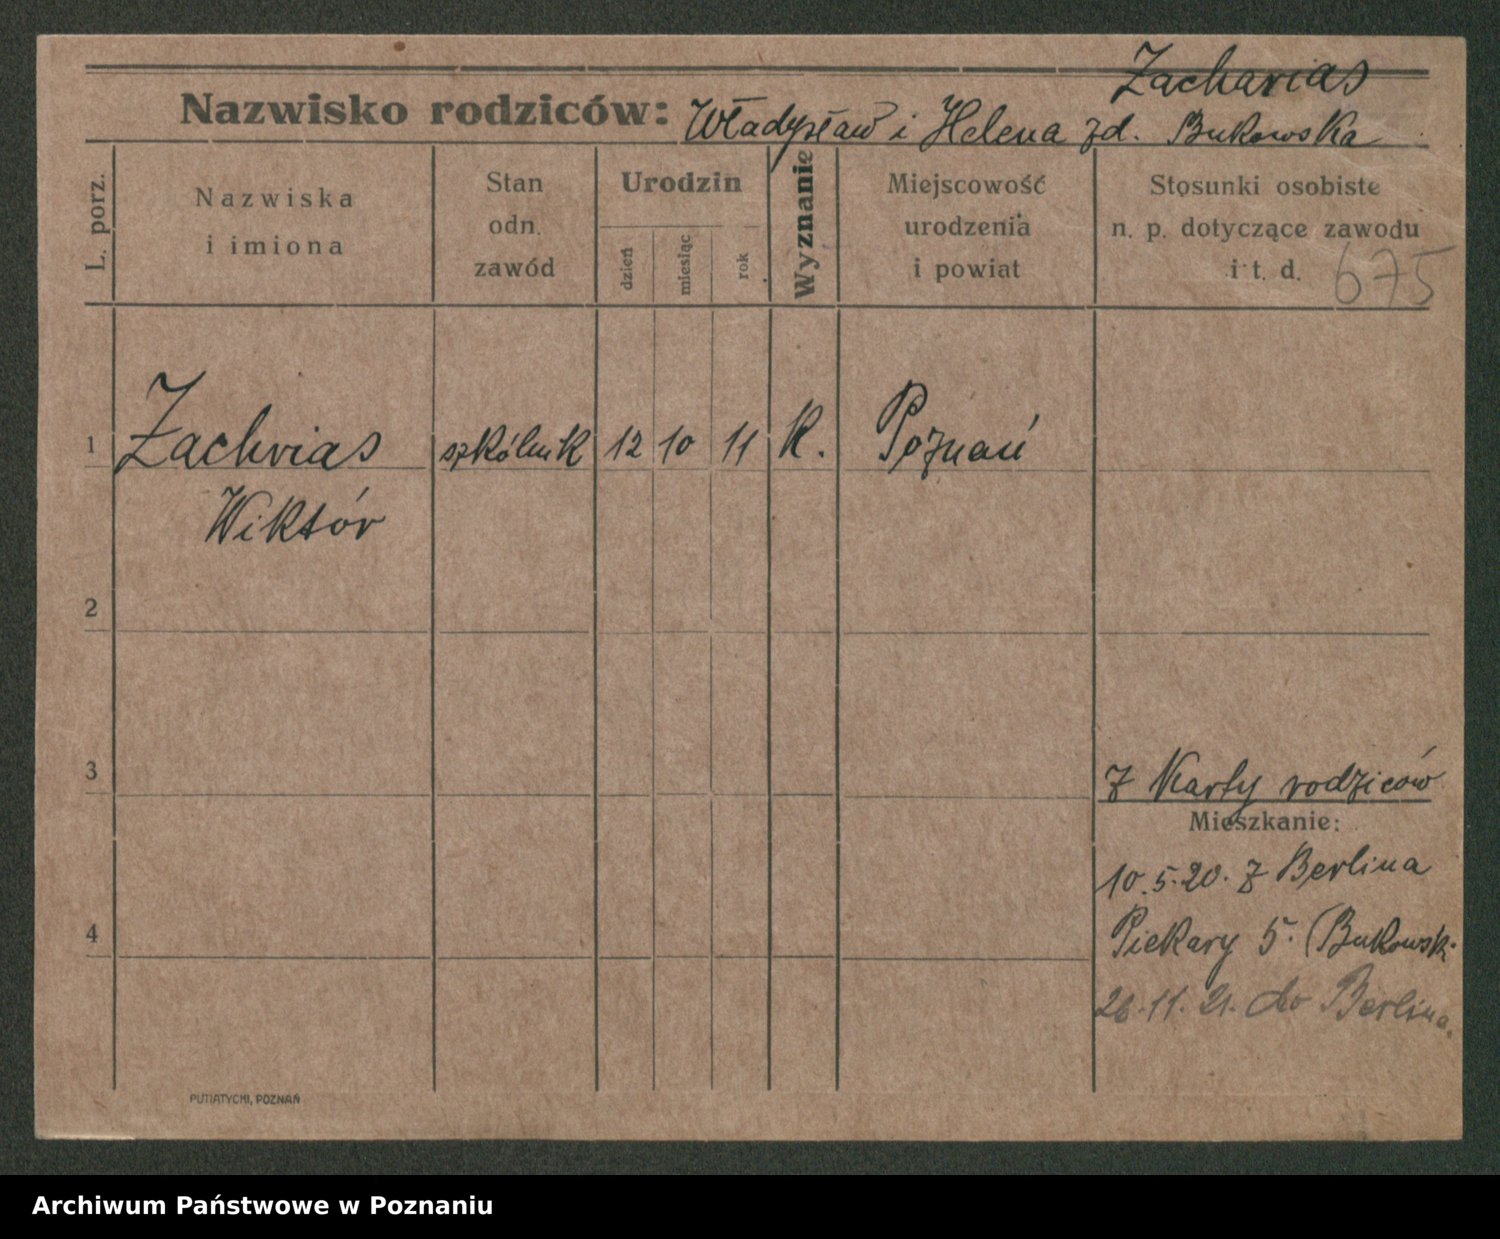 Zacharias
Nazwisko rodziców: Władysław i Helena zd. Bukowska
L. porz.
Nazwiska
i imiona
Stan
odn.
zawód
Urodzin
dzień
miesiąc
rok
Wyznanie
Miejscowość
urodzenia
i powiat
Stosunki osobiste
n. p. dotyczące zawodu
i t. d.
675
1 Zachrias szkólnik 12 10 11 K. Poznań
Wiktór
2
3
Z Karty rodziców
Mieszkanie:
10.5.20. z Berlina
4
Piekary 5. (Bukowsk.
26.11.21. do Berlina.
PUTIATYCKI, POZNAŃ
Archiwum Państwowe w Poznaniu